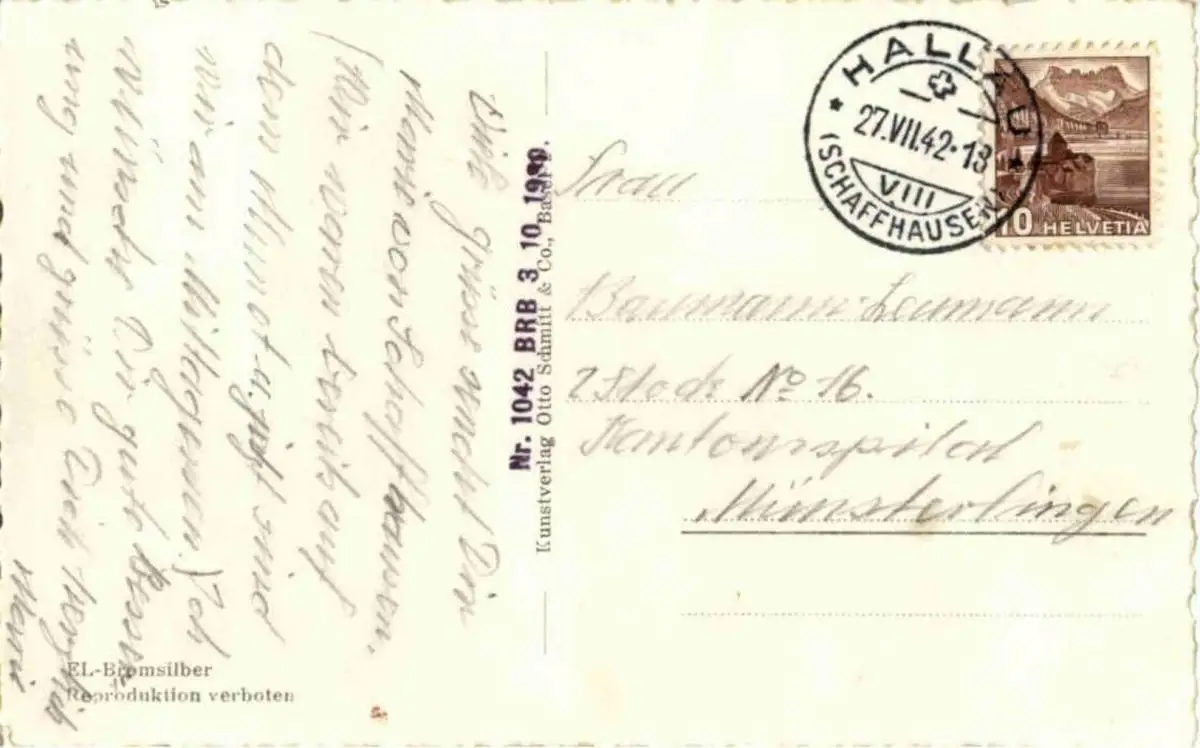 Viele grüsse sendet Dir
von Schaffhausen.
(Wir waren bereits auf
dem Munot u. jetzt sind
wir am Mittagessen.) Ich
wünsche Dir gute Besse-
rung und grüsse Dich herzlich
Marie
EL-Bromsilber
Reproduktion verboten
Nr. 1042 BRB 3 10. 19
Kunstverlag Otto Schmitt & Co., Basel
HALLAU
27.VII.42-18
VIII
(SCHAFFHAUSEN)
10 HELVETIA
Frau
Baumann-Leumann
2 Stock No 16.
Kantonsspital
Münsterlingen